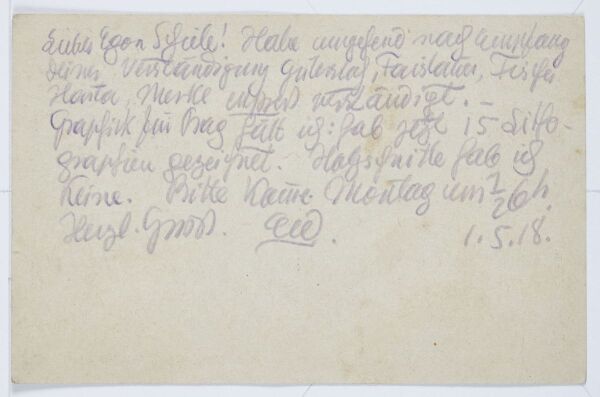 Lieber Egon Schiele! Habe umgehend nach Empfang
deiner Verständigung Gütersloh, Faistauer, Fischer
Harta, Merkel express verständigt. –
Graphik für Prag hätt ich: hab jetzt 15 Litho-
graphien gezeichnet. Holzschnitte hab ich
keine. Bitte komme Montag um 1/2 6 h.
Herzl. Gruß. 1.5.18.